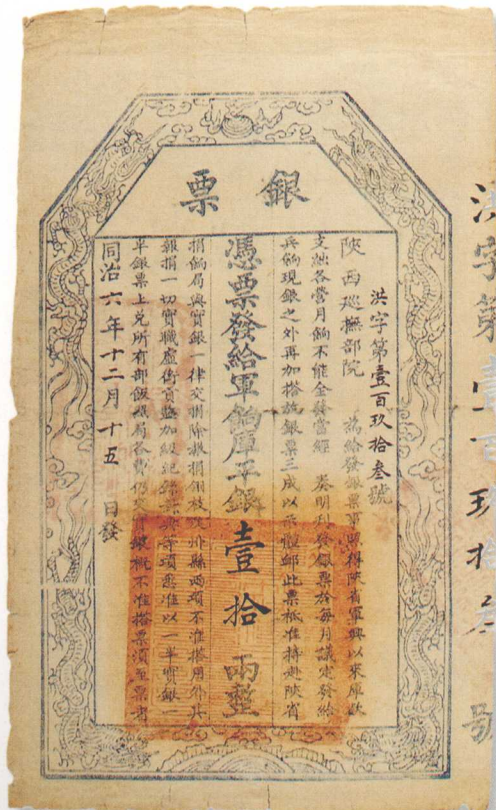 銀票
洪字第壹百玖拾叁號
陝西巡撫部院 為給發銀票事照得陝省軍興以來庫款
支絀各營月餉不能全發當經 奏明刊發銀票於每月議定發給
兵餉現銀之外再加搭放銀票三成以示體卹此票祇准持赴陝省
憑票發給軍餉庫平銀壹拾兩整
捐餉局與實銀一律交捐除報捐翎枝州縣兩項不准搭用外其
報捐一切實職虛銜貢監加級紀錄等項悉准以一半實銀一
半銀票上兌所有部飯照局各費仍 銀概不准搭票須至票者
同治六年十二月十五日發
洪字第壹百玖拾叁號